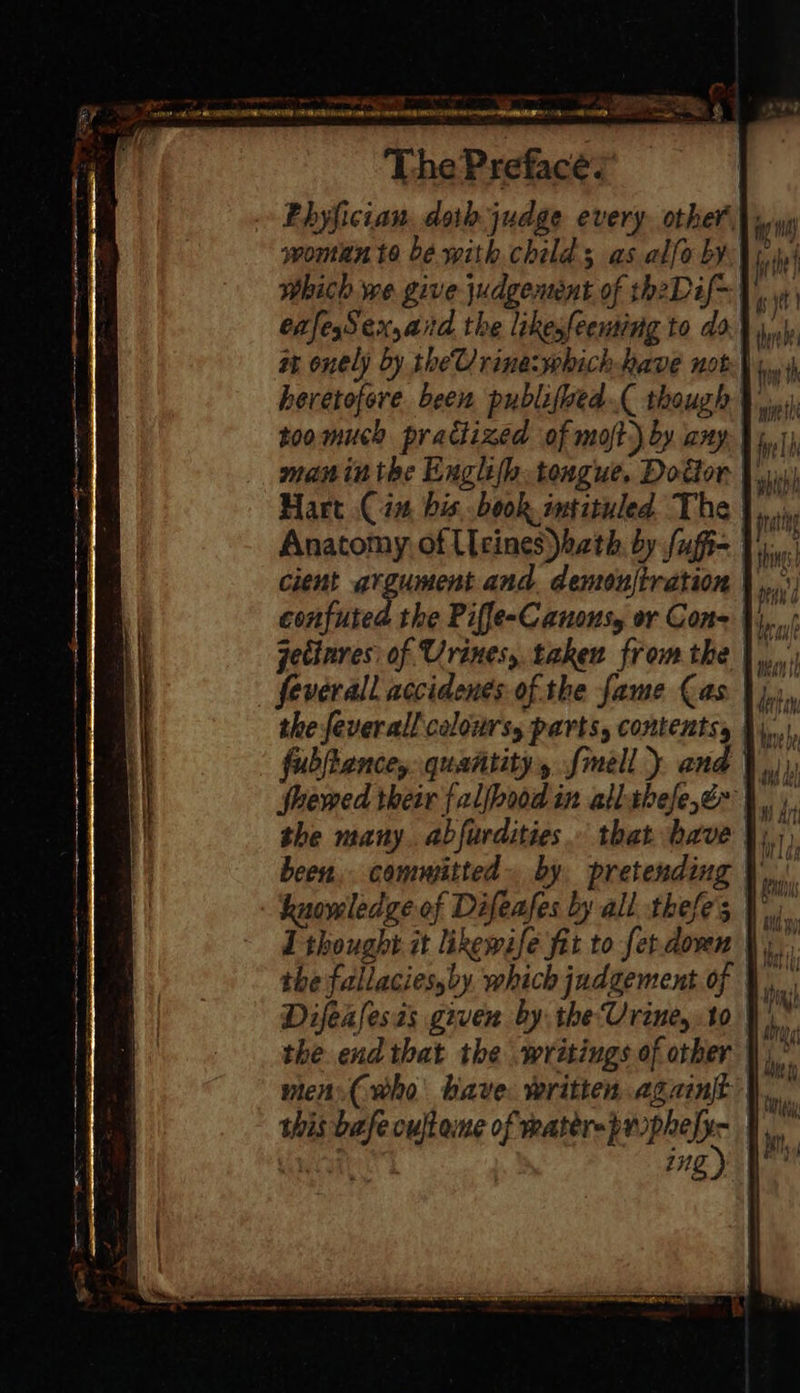 The Preface.
Phyſician doth judge every other
woman to be with child; as alſo by
which we give judgement of the Diſ-
eaſe, Sex, and the like, ſeeming to do
it onely by the Urine: which have not
heretofore been publiſhed (though
too much practized of moſt) by any
man in the Engliſh tongue. Doctor
Hart (in his book intituled The
Anatomy of Urines) hath by ſuffi-
cient argument and demonſtration
confuted the Piſſe-Canons, or Con-
jectures of Urines, taken from the
ſeverall accidents of the ſame (as
the ſeverall colours, parts, contents,
ſubſtance, quantity, ſmell) and
ſhewed their falſhood in all theſe, &
the many abſurdities that have
been committed by pretending
knowledge of Diſeaſes by all theſe;
I thought it likewiſe fit to ſet down
the fallacies, by which judgement of
Diſeaſes is given by the Urine, to
the end that the writings of other
men (who have written againſt
this baſe cuſtome of water-propheſy-
ing)